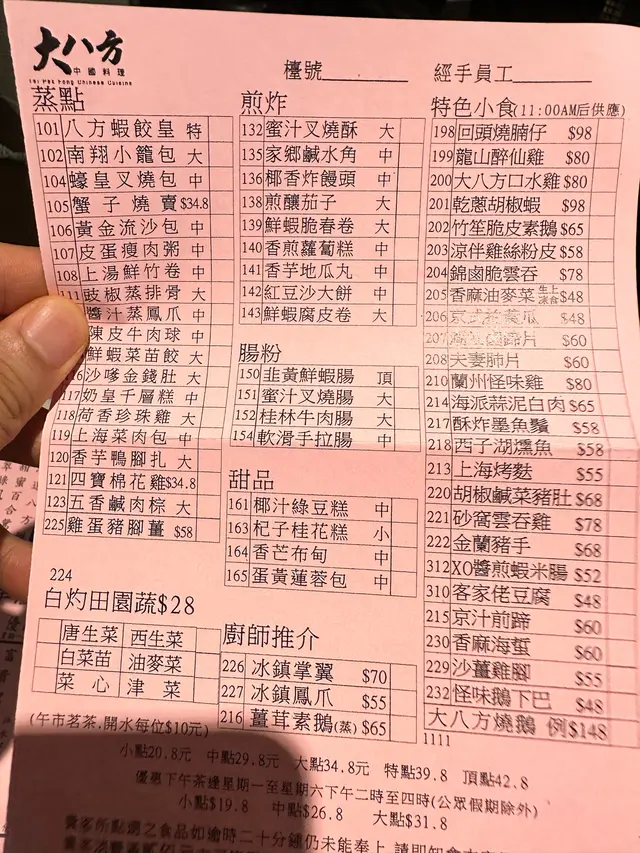 大八方
中國料理
Tai Pak Fong Chinese Cuisine
檯號________ 經手員工________
蒸點
101 八方蝦餃皇 特
102 南翔小籠包 大
104 蠔皇叉燒包 中
105 蟹子燒賣 $34.8
106 黃金流沙包 中
107 皮蛋瘦肉粥 中
108 上湯鮮竹卷 中
111 豉椒蒸排骨 大
醬汁蒸鳳爪 中
陳皮牛肉球 中
鮮蝦菜苗餃 大
16 沙嗲金錢肚 大
117 奶皇千層糕 中
118 荷香珍珠雞 大
119 上海菜肉包 中
120 香芋鴨腳扎 大
121 四寶棉花雞 $34.8
123 五香鹹肉棕 大
225 雞蛋豬腳薑 $58
224
白灼田園蔬$28
唐生菜 西生菜
白菜苗 油麥菜
菜心 津菜
煎炸
132 蜜汁叉燒酥 大
135 家鄉鹹水角 中
136 椰香炸饅頭 中
138 煎釀茄子 大
139 鮮蝦脆春卷 大
140 香煎蘿蔔糕 中
141 香芋地瓜丸 中
142 紅豆沙大餅 中
143 鮮蝦腐皮卷 大
腸粉
150 韭黃鮮蝦腸 頂
151 蜜汁叉燒腸 大
152 桂林牛肉腸 大
154 軟滑手拉腸 中
甜品
161 椰汁綠豆糕 中
163 杞子桂花糕 小
164 香芒布甸 中
165 蛋黃蓮蓉包 中
廚師推介
226 冰鎮掌翼 $70
227 冰鎮鳳爪 $55
216 薑茸素鵝(蒸) $65
特色小食(11:00AM后供應)
198 回頭燒腩仔 $98
199 龍山醉仙雞 $80
200 大八方口水雞 $80
201 乾蔥胡椒蝦 $98
202 竹笙脆皮素鵝 $65
203 涼伴雞絲粉皮 $58
204 錦鹵脆雲吞 $78
205 香麻油麥菜 生上涼食 $48
206 京式 瓜 $48
207 片 $60
208 夫妻肺片 $60
210 蘭州怪味雞 $80
214 海派蒜泥白肉 $65
217 酥炸墨魚鬚 $58
218 西子湖燻魚 $58
213 上海烤麩 $55
220 胡椒鹹菜豬肚 $68
221 砂窩雲吞雞 $78
222 金蘭豬手 $68
312 XO醬煎蝦米腸 $52
310 客家佬豆腐 $48
215 京汁前蹄 $60
230 香麻海蜇 $60
229 沙薑雞腳 $55
232 怪味鵝下巴 $48
大八方燒鵝 例$148
1111
(午市茗茶,開水每位$10元)
小點20.8元 中點29.8元 大點34.8元 特點39.8 頂點42.8
優惠下午茶逢星期一至星期六下午二時至四時(公眾假期除外)
小點$19.8 中點$26.8 大點$31.8
貴客所點選之食品如逾時二十分鐘仍未能奉上,請即知會